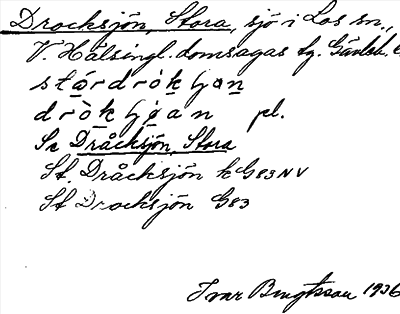 Drocksjön, Stora, sjö i Los sn.,
V. Hälsingl. domsagas tg. Gävleb.
stórdròkʃɷn
dròkʃøan pl.
Se Dråcksjön, Stora
St. Dråcksjön k G83NV
St Drocksjön G83
Ivar Bengtsson 1936